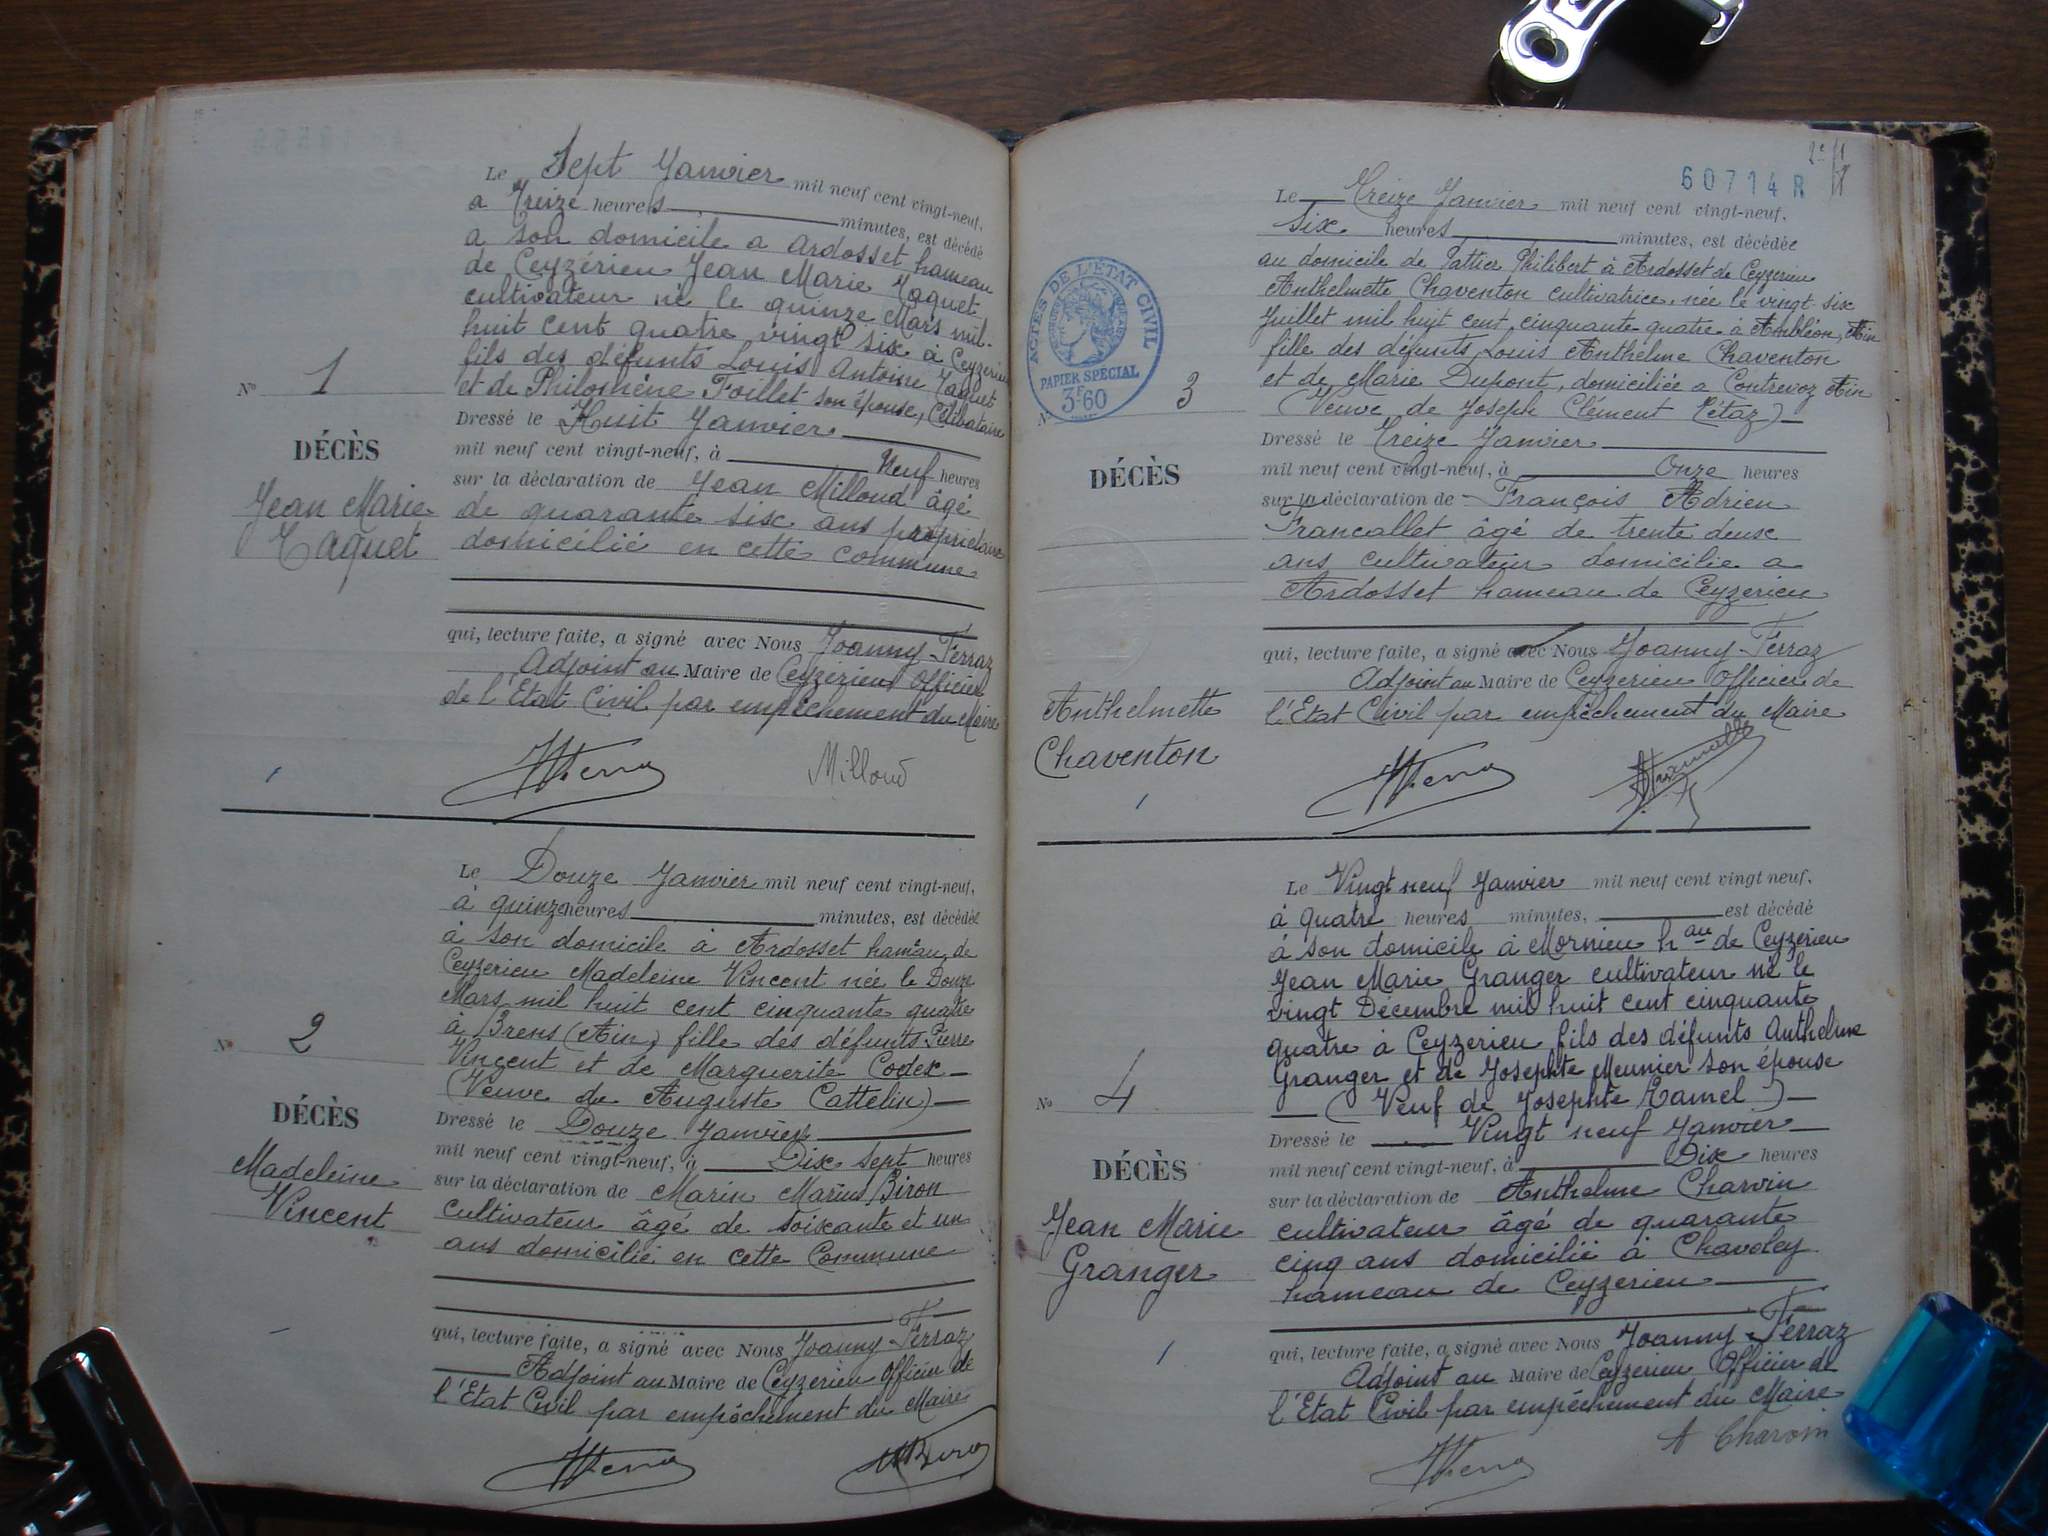 Le Sept Janvier mil neuf cent vingt-neuf,
a Treize heures minutes, est décédé
a son domicile a Ardosset hameau
de Ceyzérieu Jean Marie Taquet
cultivateur né le quinze Mars mil-
huit cent quatre vingt six à Ceyzerieu
fils des défunts Louis Antoine Taquet
et de Philomène Foillet son épouse, Célibataire
No 1
DÉCÈS
Jean Marie
Taquet
Dressé le Huit Janvier
mil neuf cent vingt-neuf, à Neuf heures
sur la déclaration de Jean Milloud âgé
de quarante six ans propriétaire
domicilié en cette commune
qui, lecture faite, a signé avec Nous Joanny Ferraz
Adjoint au Maire de Ceyzerieu Officier
de l'Etat Civil par empêchement du Maire
Milloud
Le Douze Janvier mil neuf cent vingt-neuf,
à quinze heures minutes, est décédée
à son domicile à Ardosset hameau de
Ceyzerieu Madeleine Vincent née le Douze
Mars mil huit cent cinquante quatre
à Brens (Ain) fille des défunts Pierre
Vincent et de Marguerite Codex
(Veuve de Auguste Cattelin)
No 2
DÉCÈS
Madeleine
Vincent
Dressé le Douze Janvier
mil neuf cent vingt-neuf, à Dix sept heures
sur la déclaration de Marin Marius Biron
Cultivateur âgé de soixante et un
ans domicilié en cette Commune
qui, lecture faite, a signé avec Nous Joanny Ferraz
Adjoint au Maire de Ceyzerieu Officier de
l'Etat Civil par empêchement du Maire
60714 R
Le Treize Janvier mil neuf cent vingt-neuf,
Six heures minutes, est décédée
au domicile de Pattier Philibert à Ardosset de Ceyzerieu
Anthelmette Chaventon cultivatrice, née le vingt six
Juillet mil huit cent cinquante quatre à Ambléon, Ain
fille des défunts Louis Anthelme Chaventon
et de Marie Dupont, domiciliée a Contrevoz Ain
(Veuve de Joseph Clément Létaz)
ACTES DE L'ÉTAT CIVIL
PAPIER SPÉCIAL
3F60
No 3
DÉCÈS
Anthelmette
Chaventon
Dressé le Treize Janvier
mil neuf cent vingt-neuf, à Onze heures
sur la déclaration de François Adrien
Francallet âgé de trente deux
ans cultivateur domicilié a
Ardosset hameau de Ceyzerieu
qui, lecture faite, a signé avec Nous Joanny Ferraz
Adjoint au Maire de Ceyzerieu Officier de
l'Etat Civil par empêchement du Maire
Le Vingt neuf Janvier mil neuf cent vingt neuf,
à quatre heures minutes, est décédé
à son domicile à Mornieu hau de Ceyzerieu
Jean Marie Granger cultivateur né le
vingt Décembre mil huit cent cinquante
quatre à Ceyzerieu fils des défunts Anthelme
Granger et de Josephte Meunier son épouse
(Veuf de Josephte Ramel)
No 4
DÉCÈS
Jean Marie
Granger
Dressé le Vingt neuf Janvier
mil neuf cent vingt-neuf, à Dix heures
sur la déclaration de Anthelme Charvin
cultivateur âgé de quarante
cinq ans domicilié à Chavoley
hameau de Ceyzerieu
qui, lecture faite, a signé avec Nous Joanny Ferraz
Adjoint au Maire de Ceyzerieu Officier de
l'Etat Civil par empêchement du Maire
A Charvin